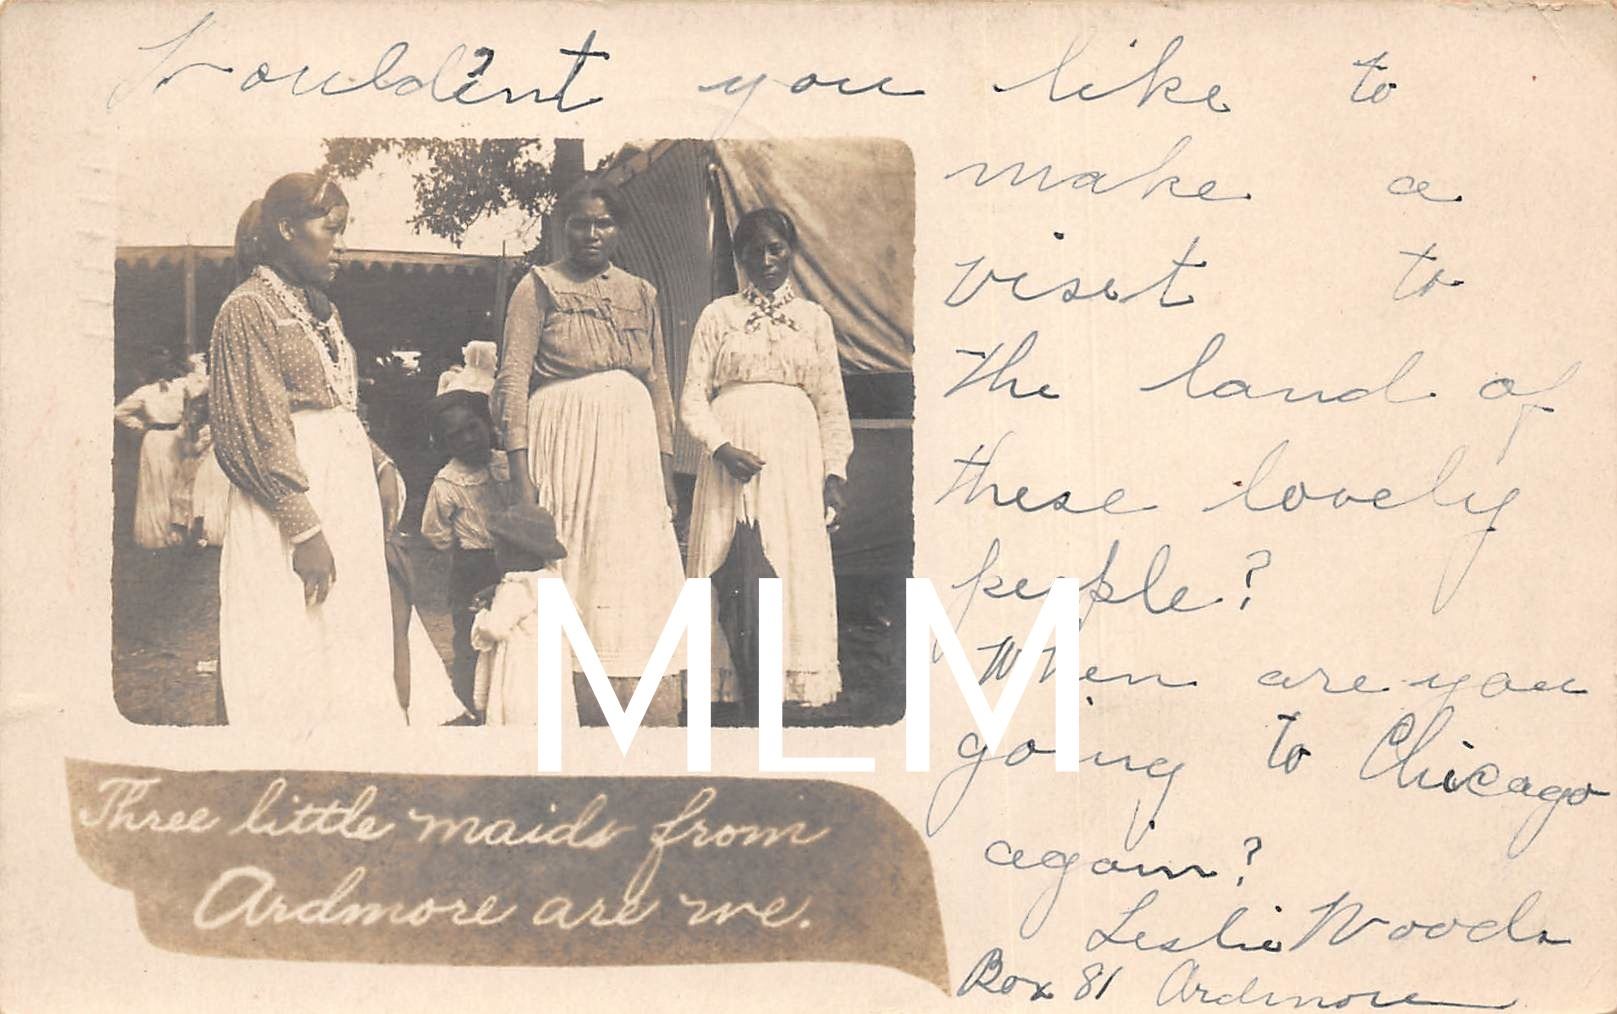 Wouldn't you like to
make a
viset to
the land of
these lovely
people?
When are you
going to Chicago
again?
Leslie Woods
Box 81 Ardmore
Three little maids from
Ardmore are we.
MLM